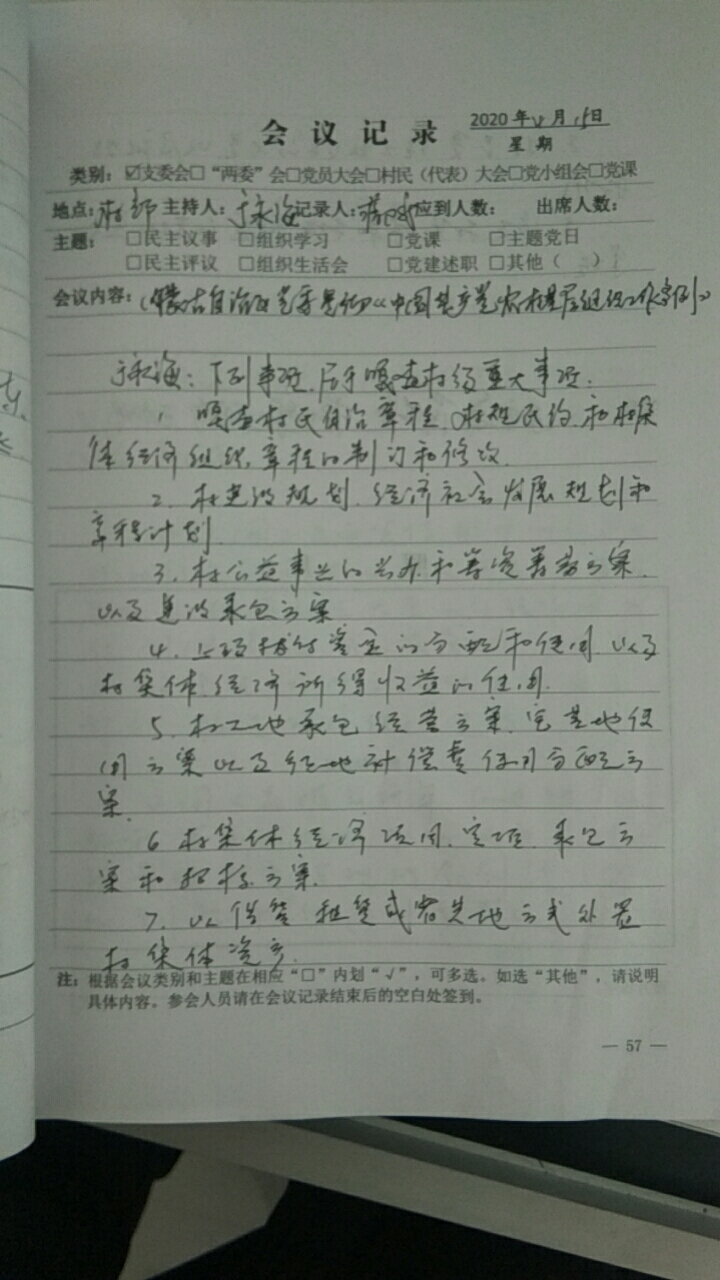 会议记录
2020年 月15日
星期
类别：☑支委会□“两委”会□党员大会□村民（代表）大会□党小组会□党课
地点：村部 主持人：于永海 记录人： 应到人数： 出席人数：
主题：□民主议事 □组织学习 □党课 □主题党日
□民主评议 □组织生活会 □党建述职 □其他（ ）
会议内容：《内蒙古自治区党委贯彻《中国共产党农村基层组织工作条例》
于永海：下列事项，属于嘎查村级重大事项：
1、嘎查村民自治章程、村规民约和村集
体经济组织章程的制订和修改
2、村建设规划、经济社会发展规划和
章程计划
3、村公益事业的兴办和筹资筹劳方案，
以及建设承包方案
4、上级拨付资金的分配和使用，以及
村集体经济所得收益的使用
5、村土地承包经营方案，宅基地使
用方案以及征地补偿费使用分配方
案
6、村集体经济项目、立项、承包方
案和招标方案
7、以借贷租赁或者其他方式处置
村集体资产
注：根据会议类别和主题在相应“□”内划“√”，可多选。如选“其他”，请说明
具体内容。参会人员请在会议记录结束后的空白处签到。
— 57 —